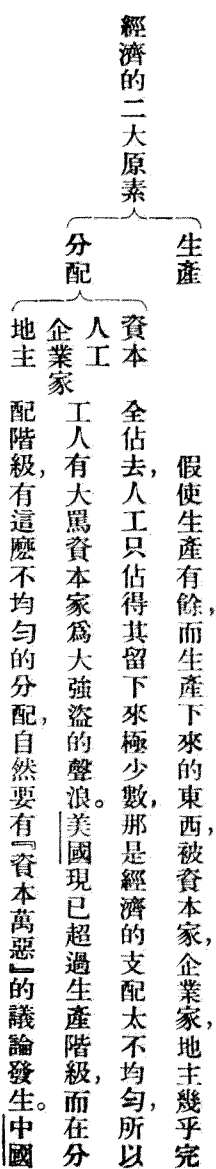 經濟的二大原素
生產
分配
資本
人工
企業家
地主
假使生產有餘,而生產下來的東西,被資本家,企業家,地主幾乎完
全佔去,人工只佔得其留下來極少數,那是經濟的支配太不均勻,所以
工人有大罵資本家爲大強盜的聲浪。美國現已超過生產階級,而在分
配階級,有這麽不均勻的分配,自然要有『資本萬惡』的議論發生。中國